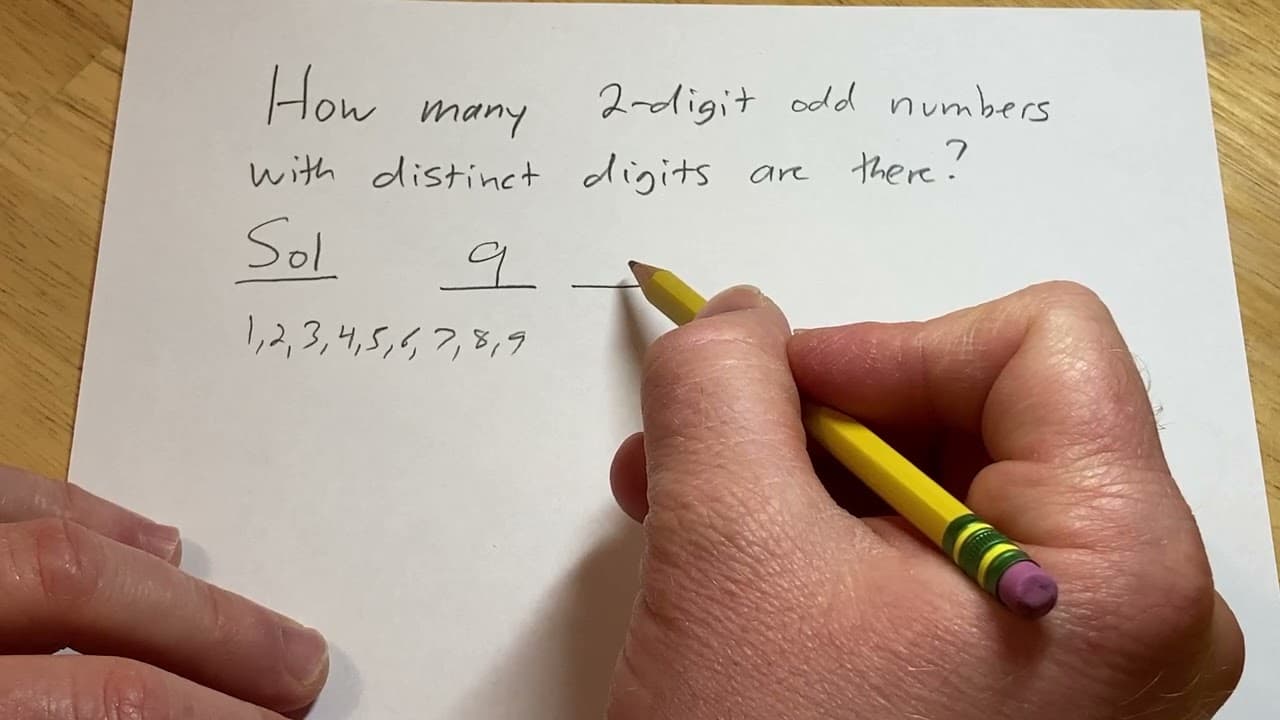 How many 2-digit odd numbers
with distinct digits are there?
Sol 9
1,2,3,4,5,6,7,8,9